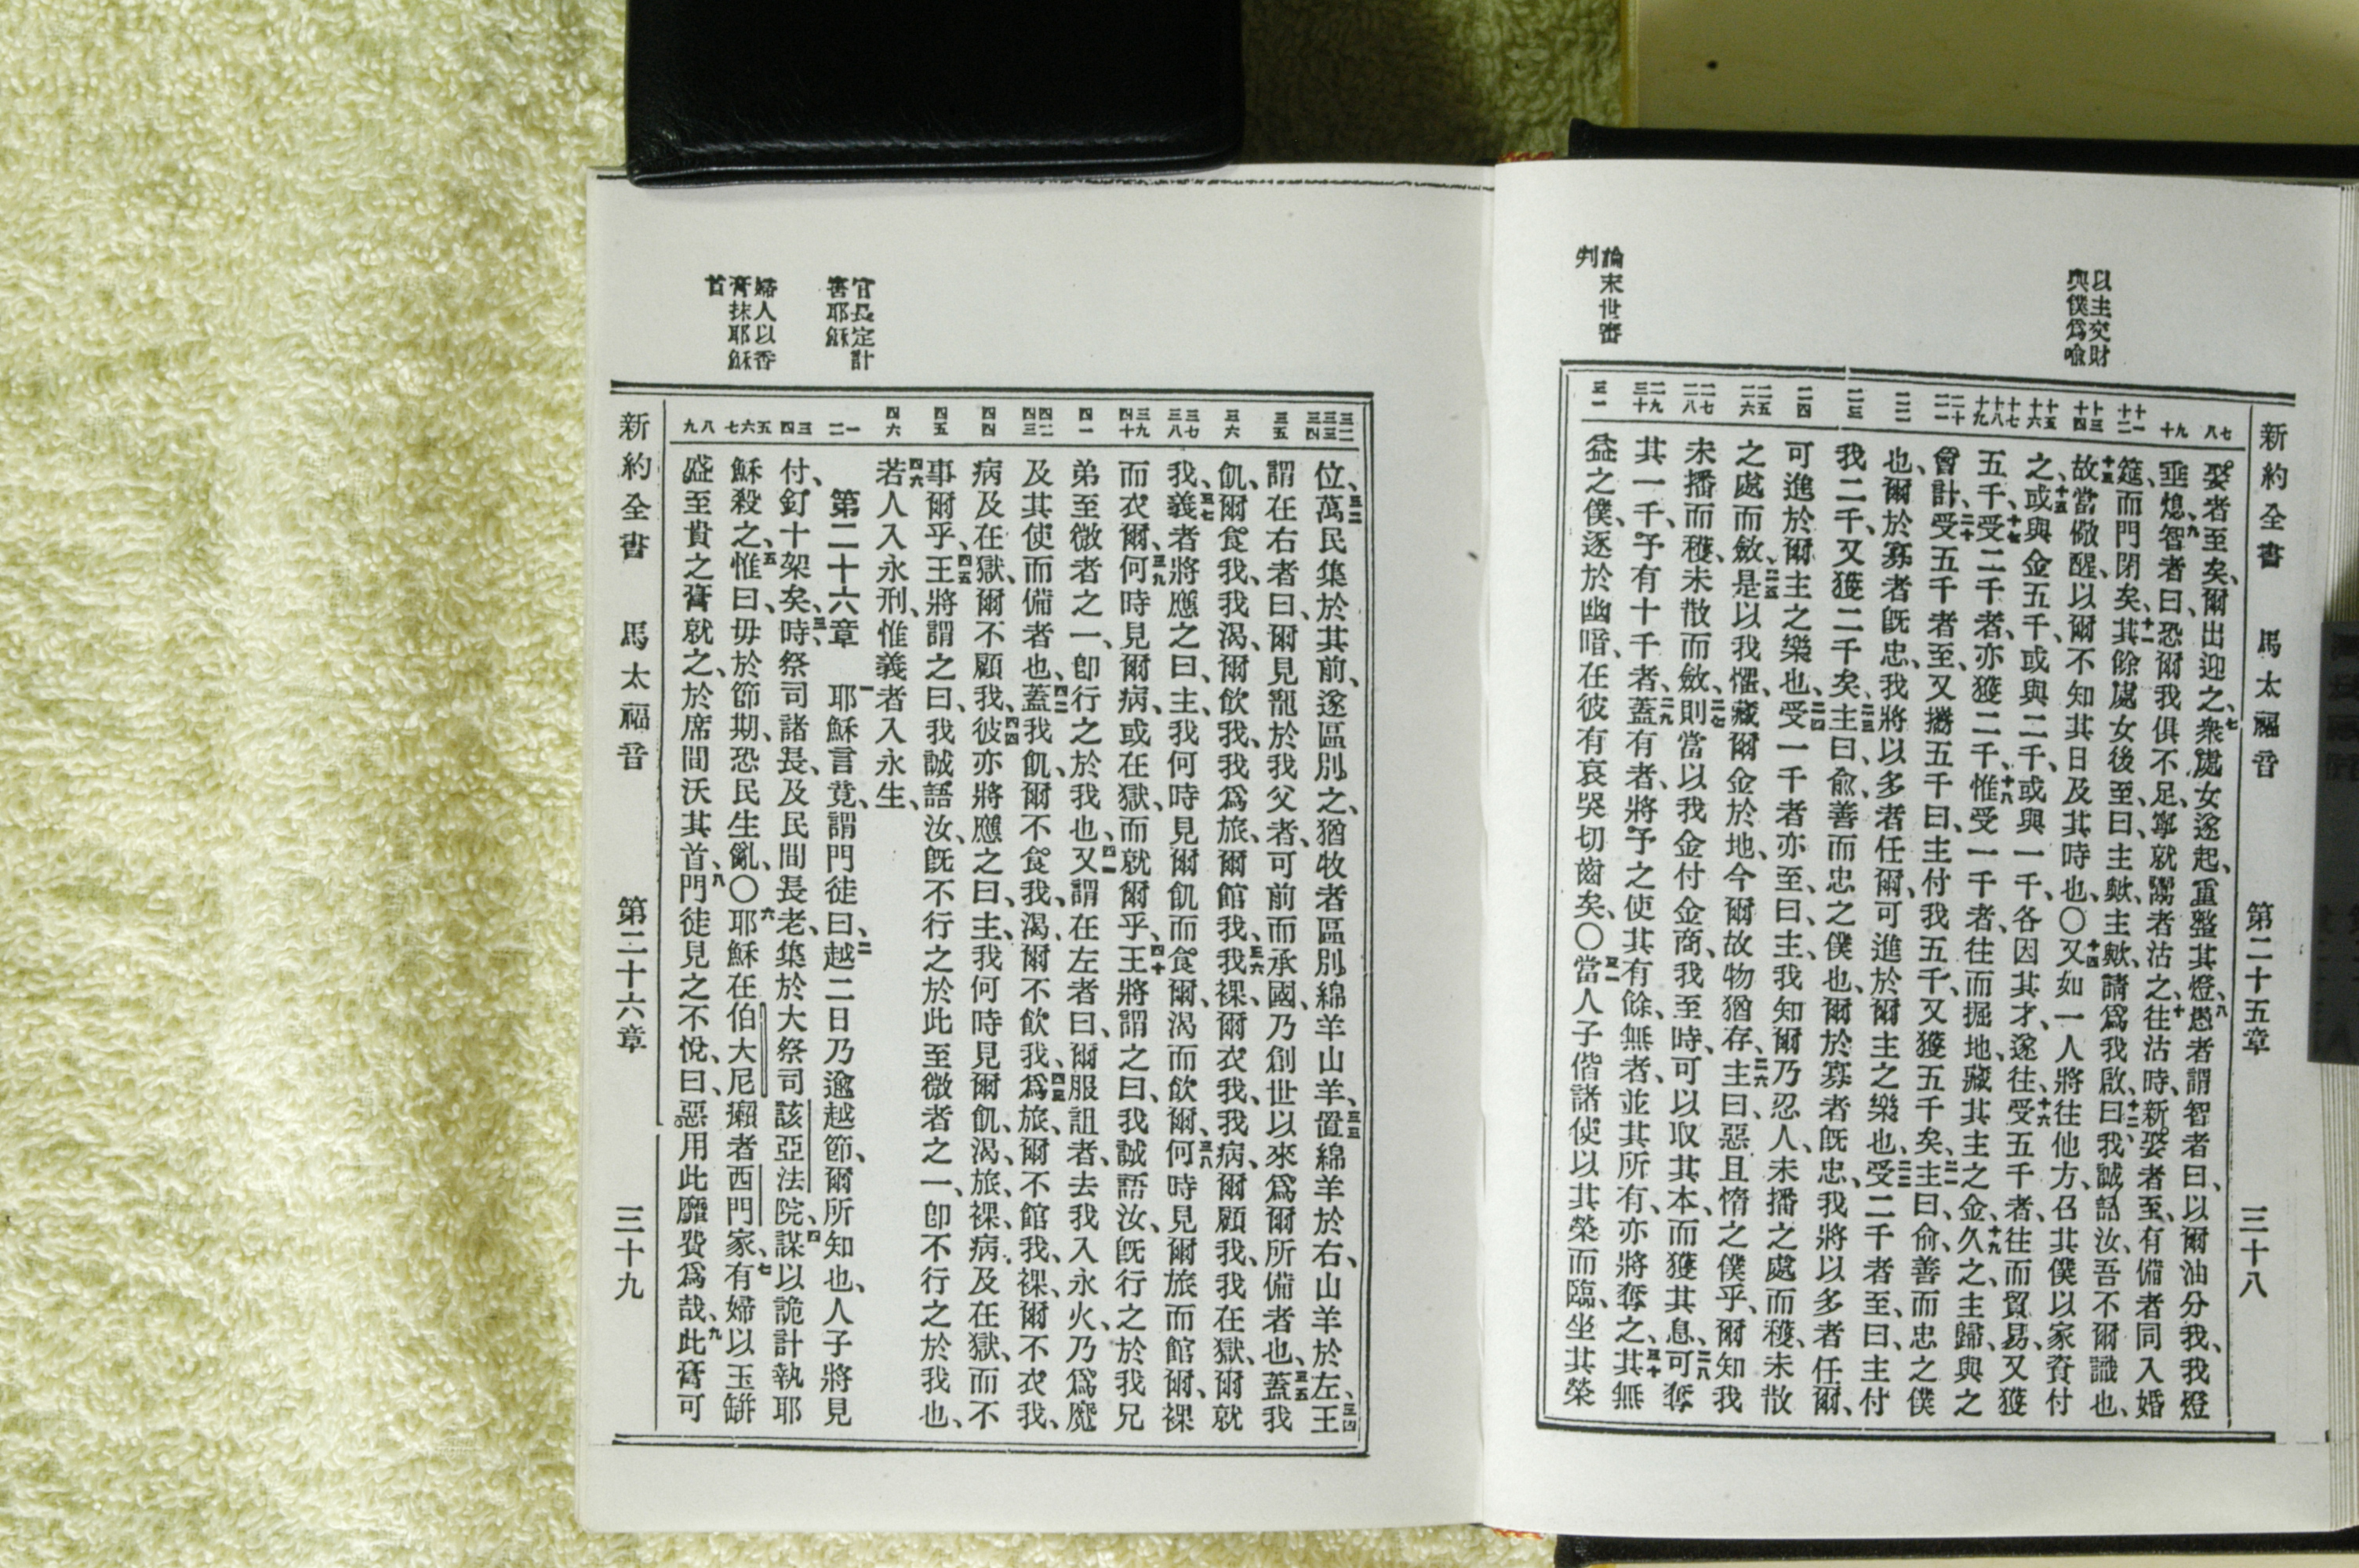 以主交財
與僕爲喩
論末世審
判
新約全書 馬太福音 第二十五章 三十八
七 八
九 十
十一 十二
十三 十四
十五 十六
十七 十八 十九
二十 二一
二二
二三
二四
二五 二六
二七 二八
二九 三十
三一
娶者至矣、爾出迎之、七衆處女遂起、重整其燈、八愚者謂智者曰、以爾油分我、我燈
垂熄、九智者曰、恐爾我俱不足、寧就鬻者沽之、十往沽時、新娶者至、有備者同入婚
筵、而門閉矣、十一其餘處女後至、曰、主歟、主歟、請爲我啟、十二曰、我誠語汝、吾不爾識也、
十三故當儆醒、以爾不知其日及其時也、〇十四又如一人將往他方、召其僕以家資付
之、十五或與金五千、或與二千、或與一千、各因其才、遂往、十六受五千者、往而貿易、又獲
五千、十七受二千者、亦獲二千、十八惟受一千者、往而掘地、藏其主之金、十九久之、主歸與之
會計、二十受五千者至、又攜五千曰、主付我五千、又獲五千矣、二一主曰、俞、善而忠之僕
也、爾於寡者旣忠、我將以多者任爾、可進於爾主之樂也、二二受二千者至、曰、主付
我二千、又獲二千矣、二三主曰、俞、善而忠之僕也、爾於寡者旣忠、我將以多者任爾、
可進於爾主之樂也、二四受一千者亦至、曰、主、我知爾乃忍人、未播之處而穫、未散
之處而斂、二五是以我懼、藏爾金於地、今爾故物猶存、二六主曰、惡且惰之僕乎、爾知我
未播而穫、未散而斂、二七則當以我金付金商、我至時、可以取其本、而獲其息、二八可奪
其一千、予有十千者、二九蓋有者、將予之使其有餘、無者、並其所有、亦將奪之、三十其無
益之僕、逐於幽暗、在彼有哀哭切齒矣、〇三一當人子偕諸使、以其榮而臨、坐其榮
官長定計
害耶穌
婦人以香
膏抹耶穌
首
三二 三三 三四
三五
三六
三七 三八
三九 四十
四一
四二 四三
四四
四五
四六
一 二
三 四
五 六 七
八 九
位、三二萬民集於其前、遂區別之、猶牧者區別綿羊山羊、三三置綿羊於右、山羊於左、三四王
謂在右者曰、爾見寵於我父者、可前而承國、乃創世以來爲爾所備者也、三五蓋我
飢、爾食我、我渴、爾飲我、我爲旅、爾館我、三六我裸、爾衣我、我病、爾顧我、我在獄、爾就
我、三七義者將應之曰、主、我何時見爾飢而食爾、渴而飲爾、三八何時見爾旅而館爾、裸
而衣爾、三九何時見爾病、或在獄、而就爾乎、四十王將謂之曰、我誠語汝、旣行之於我兄
弟至微者之一、卽行之於我也、四一又謂在左者曰、爾服詛者、去我入永火、乃爲魔
及其使而備者也、四二蓋我飢、爾不食我、渴、爾不飲我、四三爲旅、爾不館我、裸、爾不衣我、
病及在獄、爾不顧我、四四彼亦將應之曰、主、我何時見爾飢、渴、旅、裸、病、及在獄、而不
事爾乎、四五王將謂之曰、我誠語汝、旣不行之於此至微者之一、卽不行之於我也、
四六若人入永刑、惟義者入永生、
第二十六章 一耶穌言竟、謂門徒曰、二越二日乃逾越節、爾所知也、人子將見
付、釘十架矣、三時、祭司諸長、及民間長老、集於大祭司該亞法院、四謀以詭計執耶
穌殺之、五惟曰、毋於節期、恐民生亂、〇六耶穌在伯大尼癩者西門家、七有婦以玉缾
盛至貴之膏就之、於席間沃其首、八門徒見之不悅、曰、惡用此靡費爲哉、九此膏可
新約全書 馬太福音 第二十六章 三十九